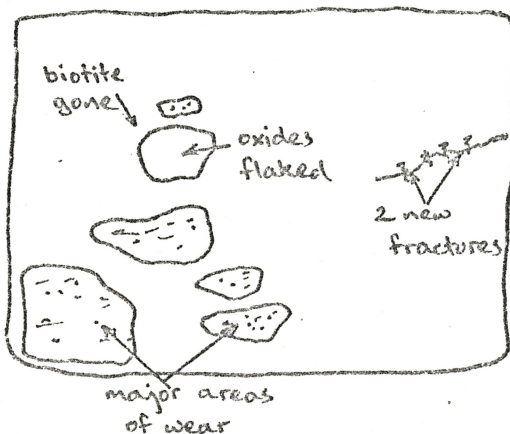 biotite
gone
oxides
flaked
2 new
fractures
major areas
of wear